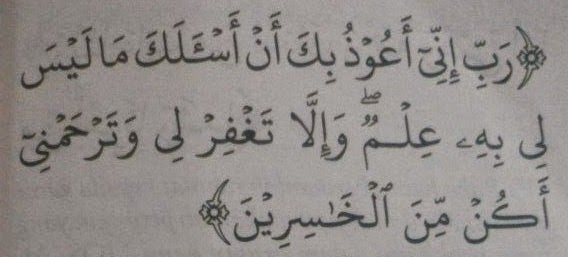 ﴿رَبِّ إِنِّيٓ أَعُوْذُ بِكَ أَنْ أَسْـَٔلَكَ مَا لَيْسَ
لِى بِهِۦ عِلْمٌ ۖ وَإِلَّا تَغْفِرْ لِى وَتَرْحَمْنِىٓ
أَكُنْ مِّنَ ٱلْخَـٰسِرِيْنَ﴾